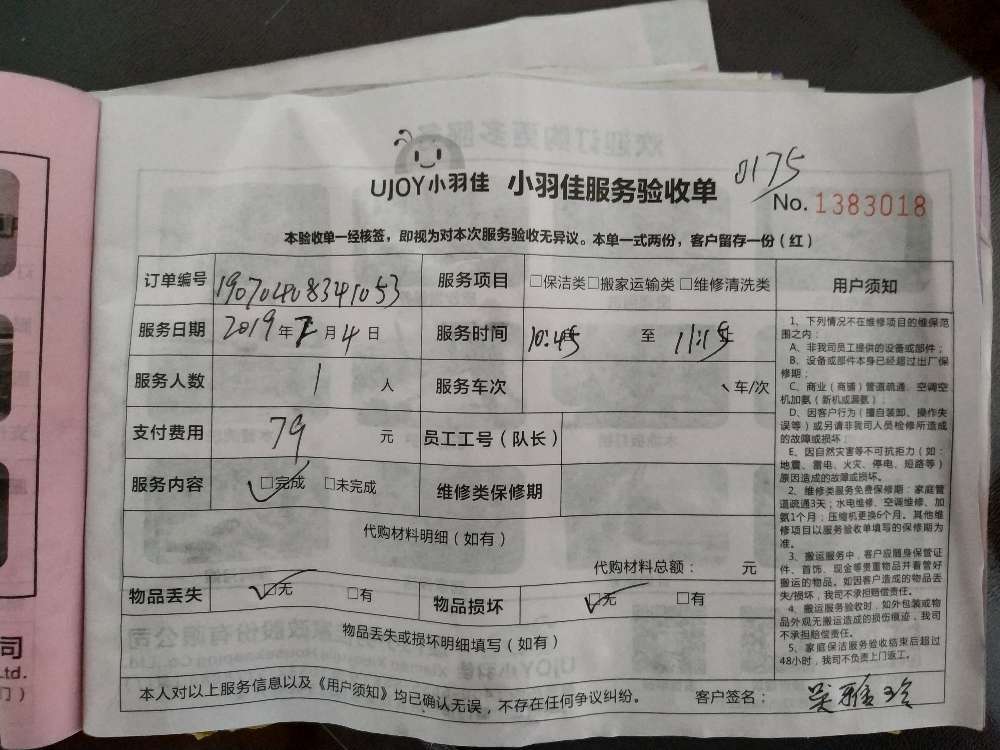 UJOY小羽佳 小羽佳服务验收单
0175
No. 1383018
本验收单一经核签，即视为对本次服务验收无异议。本单一式两份，客户留存一份（红）
订单编号 19070408341053 服务项目 □保洁类□搬家运输类 □维修清洗类
服务日期 2019年7月4日 服务时间 10:45 至 11:15
服务人数 1 人 服务车次 车/次
支付费用 79 元 员工工号（队长）
服务内容 □完成 □未完成 维修类保修期
代购材料明细（如有）
代购材料总额： 元
物品丢失 □无 □有 物品损坏 □无 □有
物品丢失或损坏明细填写（如有）
本人对以上服务信息以及《用户须知》均已确认无误，不存在任何争议纠纷。 客户签名： 吴雅玲
用户须知
1、下列情况不在维修项目的维保范
围之内：
A、非我司员工提供的设备或部件；
B、设备或部件本身已经超过出厂保
修期；
C、商业（商铺）管道疏通、空调空
机加氨（新机或漏氨）；
D、因客户行为（擅自装卸、操作失
误等）或另请非我司人员检修所造成
的故障或损坏；
E、因自然灾害等不可抗拒力（如：
地震、雷电、火灾、停电、短路等）
原因造成的故障或损坏。
2、维修类服务免费保修期：家庭管
道疏通3天；水电维修、空调维修、加
氨1个月；压缩机更换6个月。其他维
修项目以服务验收单填写的保修期为
准。
3、搬运服务中，客户应随身保管证
件、首饰、现金等贵重物品并看管好
搬运的物品。如因客户造成的物品丢
失/损坏，我司不承担赔偿责任。
4、搬运服务验收时，如外包装或物
品外观无搬运造成的损伤痕迹，我司
不承担赔偿责任。
5、家庭保洁服务验收结束后超过
48小时，我司不负责上门返工。
司
Ltd.
门）